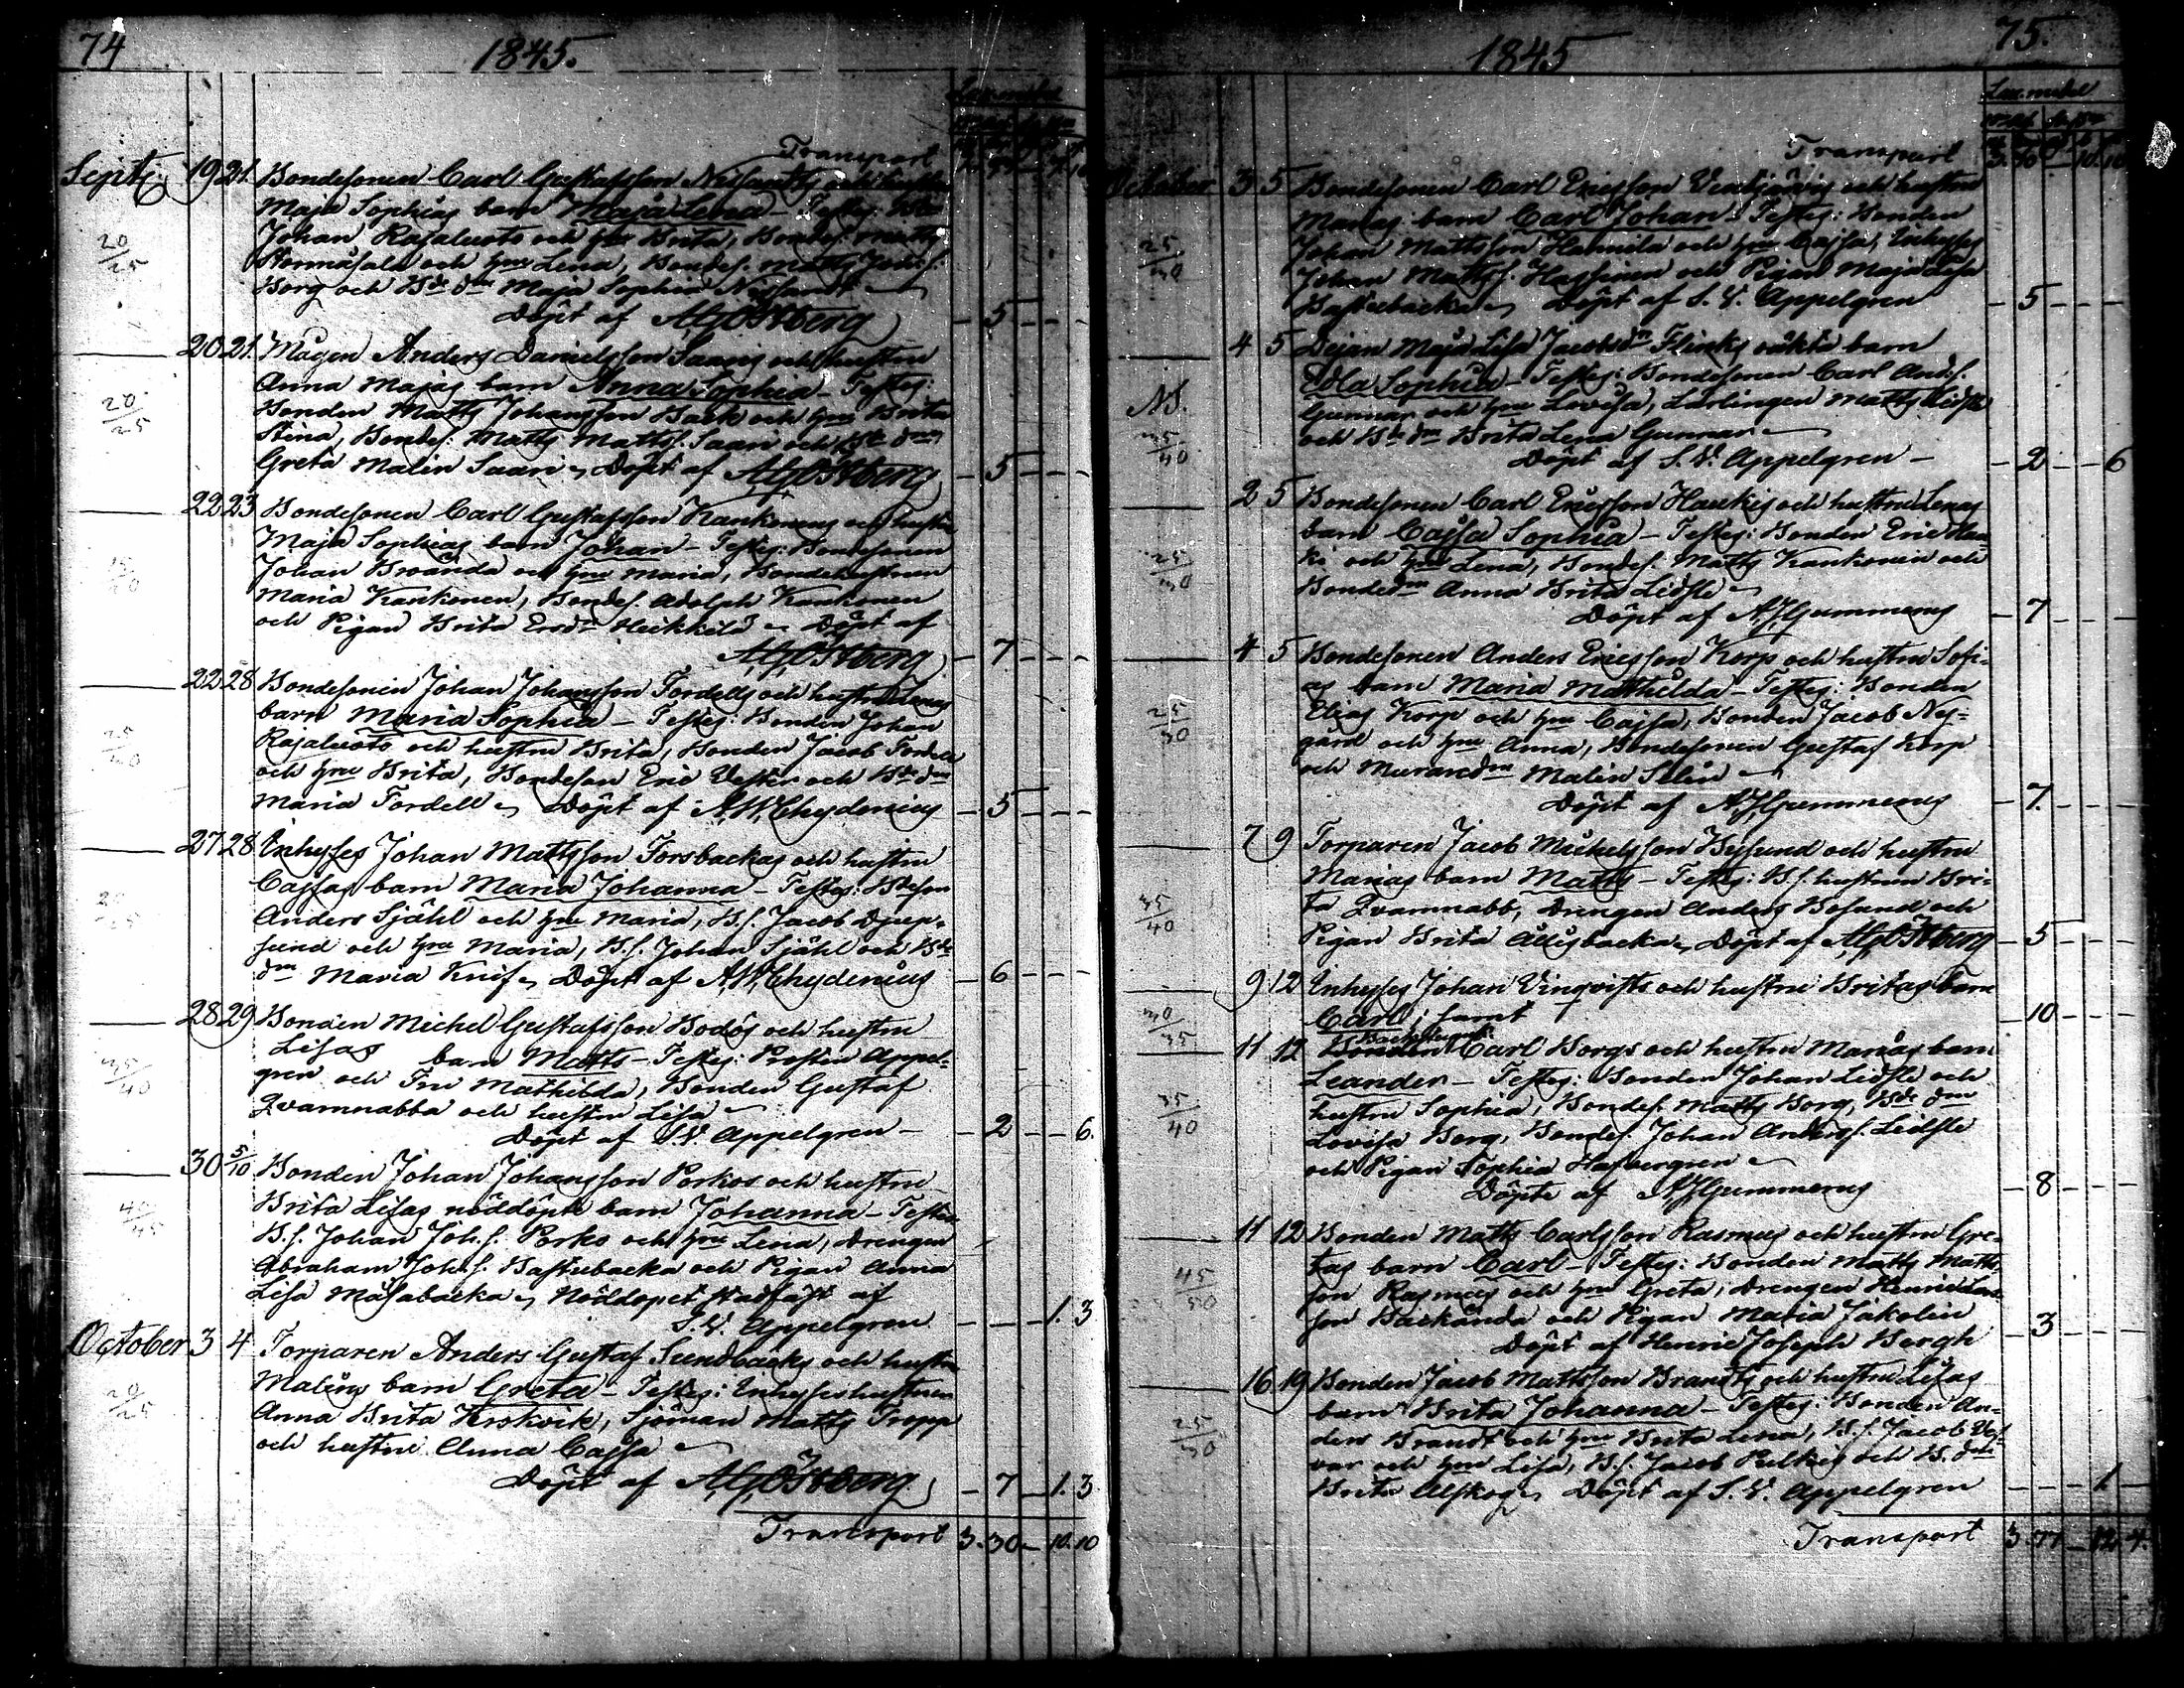 74
1845.
Transport
Septb. 19 21. Bondesonen Carl Gustafsson och
Maja Sophias barn Maja Lena - Testes:
Johan Rajaluoto och hru Brita, Bondes. Matts
och hru Lena, Bondes. Matts Johns.
Borg och Bde dn Maja Sophia
Döpt af A G Östberg - 5 - - -
20/25
20 21. Mågen Anders Danielsson Saaris och hustrun
Anna Majas barn Anna Sophia - Testes:
Bonden Matts Johansson Back och hru Brita
Stina, Bondes: Matts Mattss. Saari och Bde dn
Greta Malin Saari. Döpt af A G Östberg - 5 - - -
20/25
22 23 Bondesonen Carl Gustafsson Kankonens och hustru
Maja Sophias barn Johan - Testes: Bondesonen
Johan Brända och hru Maria, Bondehustrun
Maria Kankonen, Bondes. Adolph Kankonen
och Pigan Brita Ersdr Heikkilä. Döpt af
A G Östberg - 7 - - -
22 28 Bondesonen Johan Johansson Fordells och hustru Lenas
barn Maria Sophia - Testes: Bonden Johan
Rajaluoto och hustru Brita, Bonden Jacob Fordell
och hru Brita, Bondeson Eric och Bde dn
Maria Fordell. Döpt af A W Chydenius - 5 - - -
25/30
27 28 Inhyses Johan Mattsson Forsbackas och hustru
Cajsas barn Maria Johanna - Testes: Bdeson
Anders Själil och hru Maria, B.s. Jacob Djup-
sund och hru Maria, B.s. Johan Själil och Bde
dn Maria Knif. Döpt af A W Chydenius - 6 - - -
28 29 Bonden Michel Gustafsson Bodös och hustru
Lisas barn Matts - Testes: Prosten Appel-
gren och Fru Mathilda, Bonden Gustaf
Qvarnnabba och hustru Lisa
Döpt af S. V. Appelgren - 2 - - 6.
35/40
30 5/10 Bonden Johan Johansson Porkos och hustru
Brita Lisas nöddöpte barn Johanna - Testes
B.s. Johan Joh.s. Porko och hru Lena, Drengen
Abraham Johs. Bastubacka och Pigan Anna
Lisa Måsabacka. Nöddopet stadfäst af
S. V. Appelgren - - - 1. 3
40/45
October 3 4 Torparen Anders Gustaf Sundbacks och hustru
Malins barn Greta - Testes: Inhyseshustrun
Anna Brita, Sjöman Matts Tropp
och hustru Anna Cajsa
Döpt af A G Östberg. - 7 - 1. 3
20/25
Transport 3. 30 - 10. 10
1845
75.
Transport 3. 30 - 10. 10
October 3 5 Bondesonen Carl Ericsson och hustru
Marias barn Carl Johan - Testes: Bonden
Johan Mattsson Hannila och hru Cajsa, Inhyses
Johan Mattss. Hassinen och Pigan Maja Lisa
Bastubacka. Döpt af S. V. Appelgren - 5 - - -
25/30
4 5 Pigan Maja Lisa Jacobsdr Flinks oäkta barn
Edla Sophia - Testes: Bondesonen Carl Ands.
Gunnar och hru Lovisa, Lärlingen Matts Lidsle
och Bde dn Brita Lena Gunnar
Döpt af S. V. Appelgren - - 2 - - 6
35/40
2 5 Bondesonen Carl Ericsson Haukis och hustru Lenas
barn Cajsa Sophia - Testes: Bonden Eric Hau-
ki och hru Lena, Bondes. Matts Kankonen och
Bondedn Anna Brita Lidsle
Döpt af A J Gummerus - 7 - - -
25/30
4 5 Bondesonen Anders Ericsson Korp och hustru Sofi-
as barn Maria Mathilda - Testes: Bonden
Elias Korp och hru Cajsa, Bonden Jacob Ny-
gård och hru Anna, Bondesonen Gustaf Korp
och Muraredn Malin Selin
Döpt af A J Gummerus - 7. - - -
25/30
7 9 Torparen Jacob Michelsson Bysund och hustru
Marias barn Matts - Testes: B.s. hustrun Bri-
ta Qvarnnabb, Drengen Anders Bosund och
Pigan Brita Ålisbacka. Döpt af A G Östberg - 5 - - -
35/40
9 12 Inhyses Johan Vinqvists och hustru Britas barn
Carl, samt - 10 - - -
30/35
11 12 Carl Borgs och hustru Marias barn
Leander - Testes: Bonden Johan Lidsle och
hustru Sophia, Bondes. Matts Borg, Bde dn
Lovisa Borg, Bondes. Johan Anderss. Lidsle
och Pigan Sophia
Döpte af A J Gummerus - 8 - - -
35/40
11 12 Bonden Matts Carlsson Rasmus och hustru Gre-
tas barn Carl - Testes: Bonden Matts Matts-
son Rasmus och hru Greta, Drengen Henric Lars-
son Backända och Pigan Maria Jakolin
Döpt af Henric Joseph Bergh - 3 - - -
45/50
16 19 Bonden Jacob Mattsson Brandts och hustru Lisas
barn Brita Johanna - Testes: Bonden An-
ders Brandt och hru Brita Lena, B.s. Jacob
och hru Lisa, B.s. Jacob Pulkis och B. dn
Brita Alskog. Döpt af S. V. Appelgren - - - 1 -
25/30
Transport 3. 77 - 12. 4.